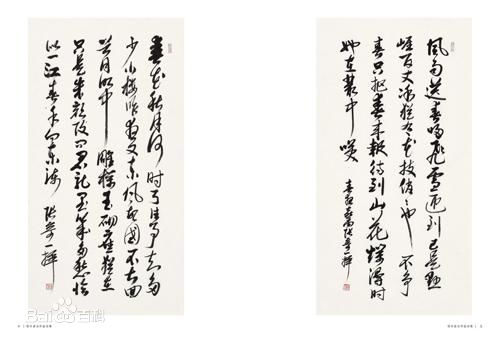 春花秋月何时了往事知多
少小楼昨夜又东风故国不堪回
首月明中雕栏玉砌应犹在
只是朱颜改问君能几多愁恰
似一江春水向东流
风雨送春归飞雪迎到已是悬
崖百丈冰犹有花枝俏俏也不争
春只把春来报待到山花烂漫时
她在丛中笑
Bai百科